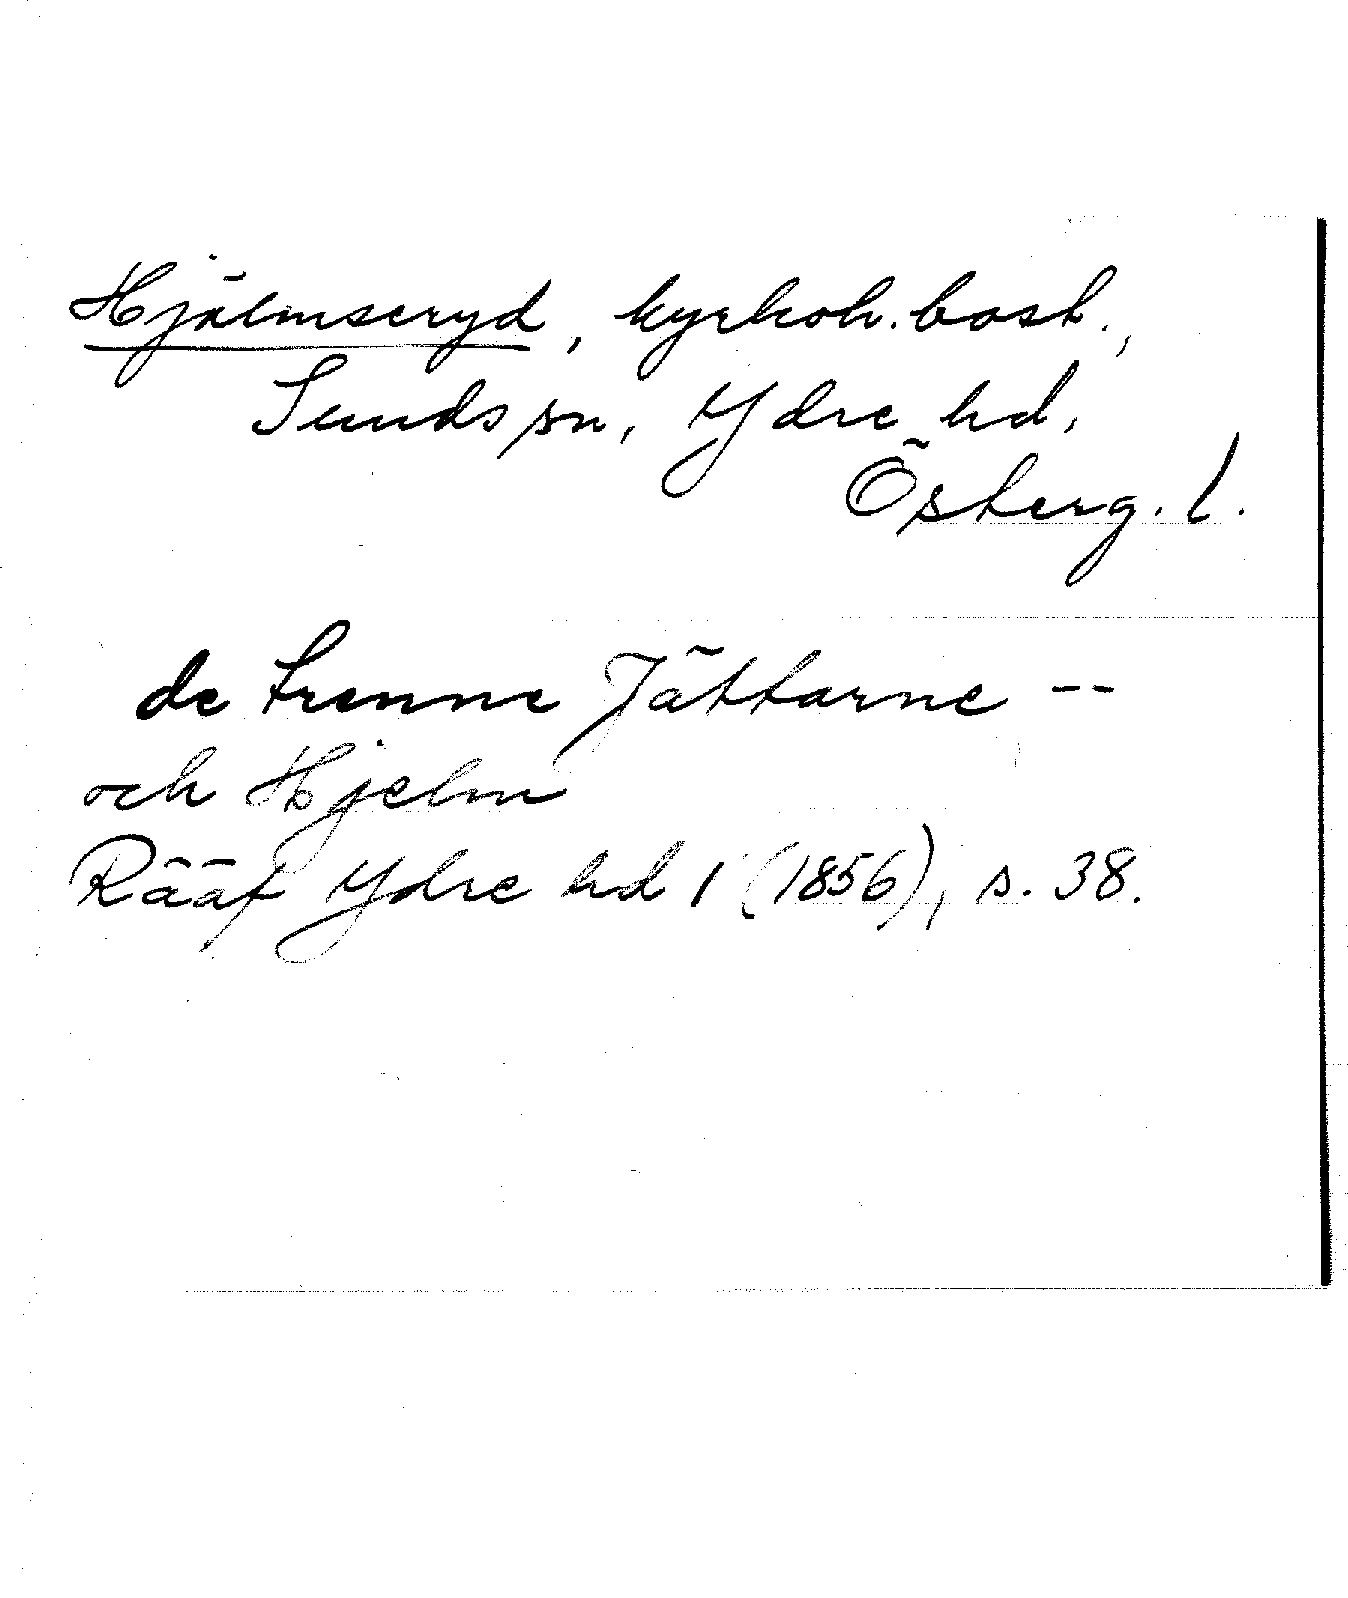 Hjälmseryd, kyrkoh. bost.,
Sunds sn, Ydre hd,
Österg. l.
de trenne Jättarne --
och Hjelm
Rääf Ydre hd 1 (1856), s. 38.